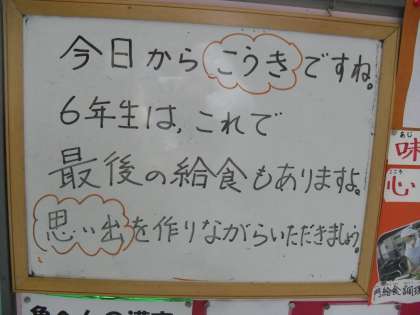 今日からこうきですね。
6年生は、これで
最後の給食もありますよ。
思い出を作りながらいただきましょう。
あじ
味
こころ
心